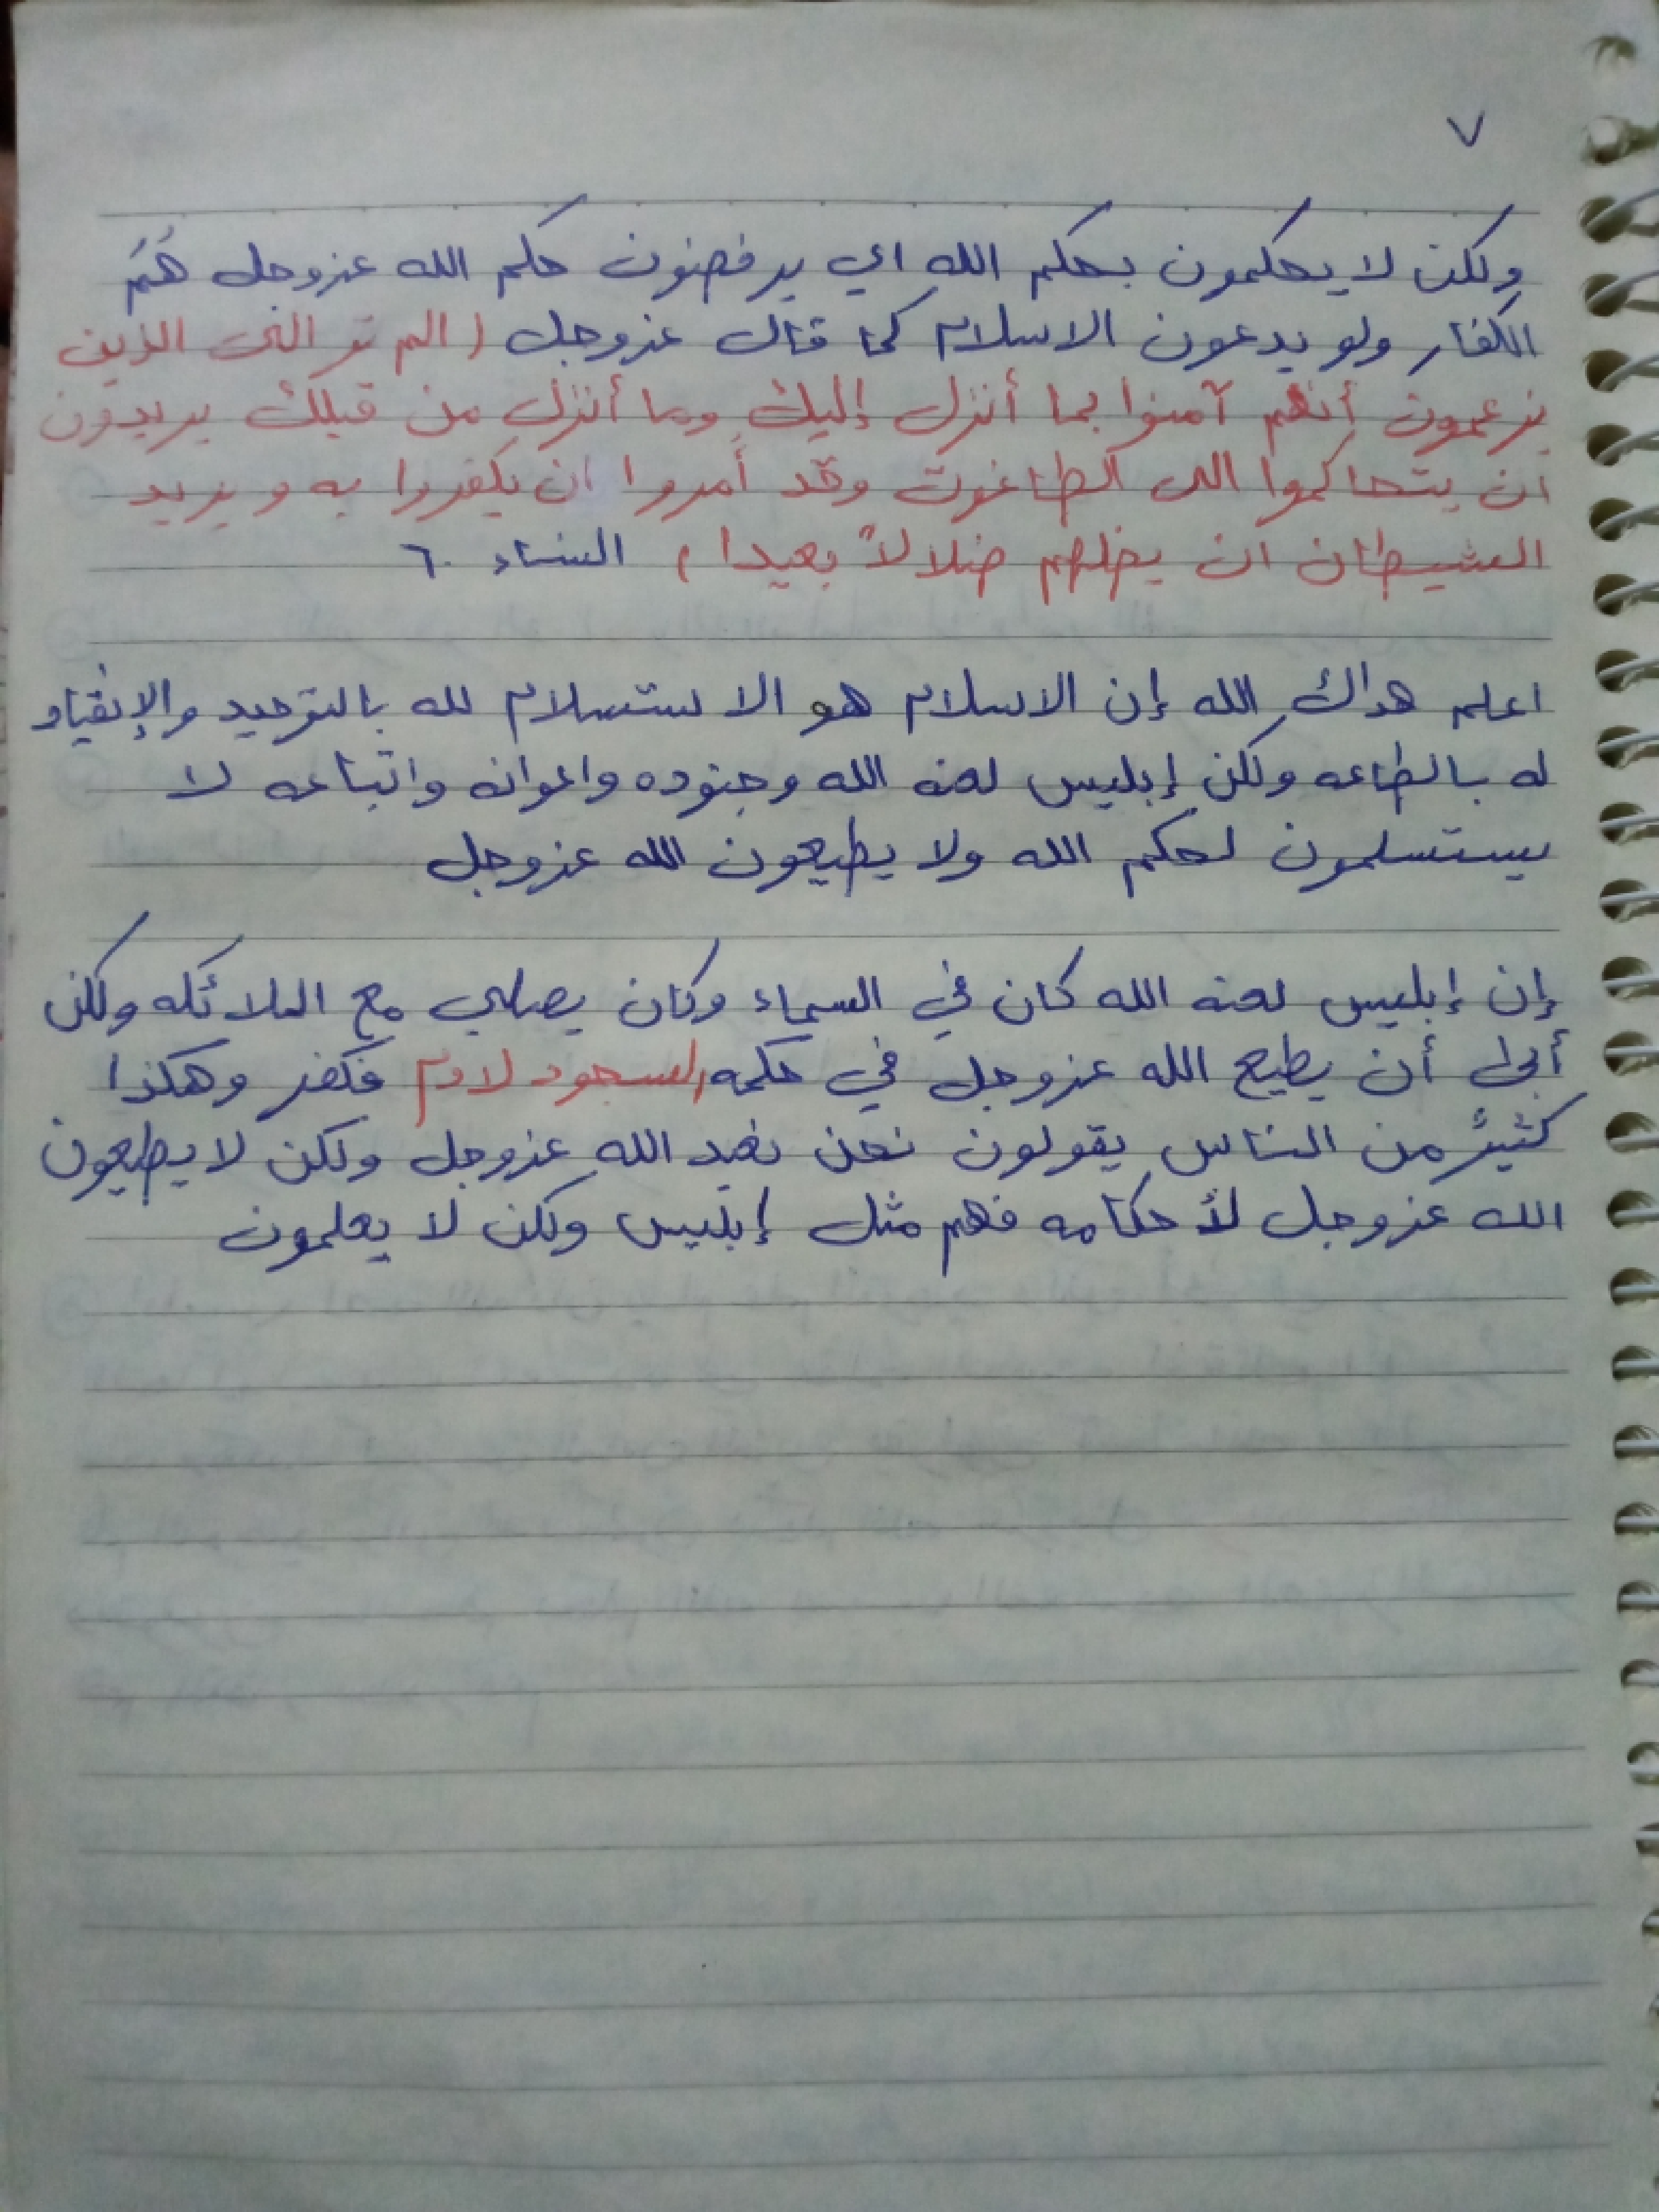 ٧
ولكن لا يحكمون بحكم الله اي يرفضون حكم الله عزوجل هُمُ
الكفار ولو يدعون الاسلام كما قال عزوجل (الم تر الى الذين
يزعمون أنهم آمنوا بما أنزل إليك وما أنزل من قبلك يريدون
ان يتحاكموا الى الطاغوت وقد أُمروا ان يكفروا به ويريد
الشيطان ان يضلهم ضلالاً بعيدا) النساء ٦٠
اعلم هداك الله إن الاسلام هو الاستسلام لله بالتوحيد والإنقياد
له بالطاعه ولكن إبليس لعنه الله وجنوده واعوانه واتباعه لا
يستسلمون لحكم الله ولا يطيعون الله عزوجل
إن إبليس لعنه الله كان في السماء وكان يصلي مع الملائكه ولكن
أبى أن يطيع الله عزوجل في حكمه السجود لادم فكفر وهكذا
كثيرٌ من الناس يقولون نحن نعبد الله عزوجل ولكن لا يطيعون
الله عزوجل لأحكامه فهم مثل إبليس ولكن لا يعلمون